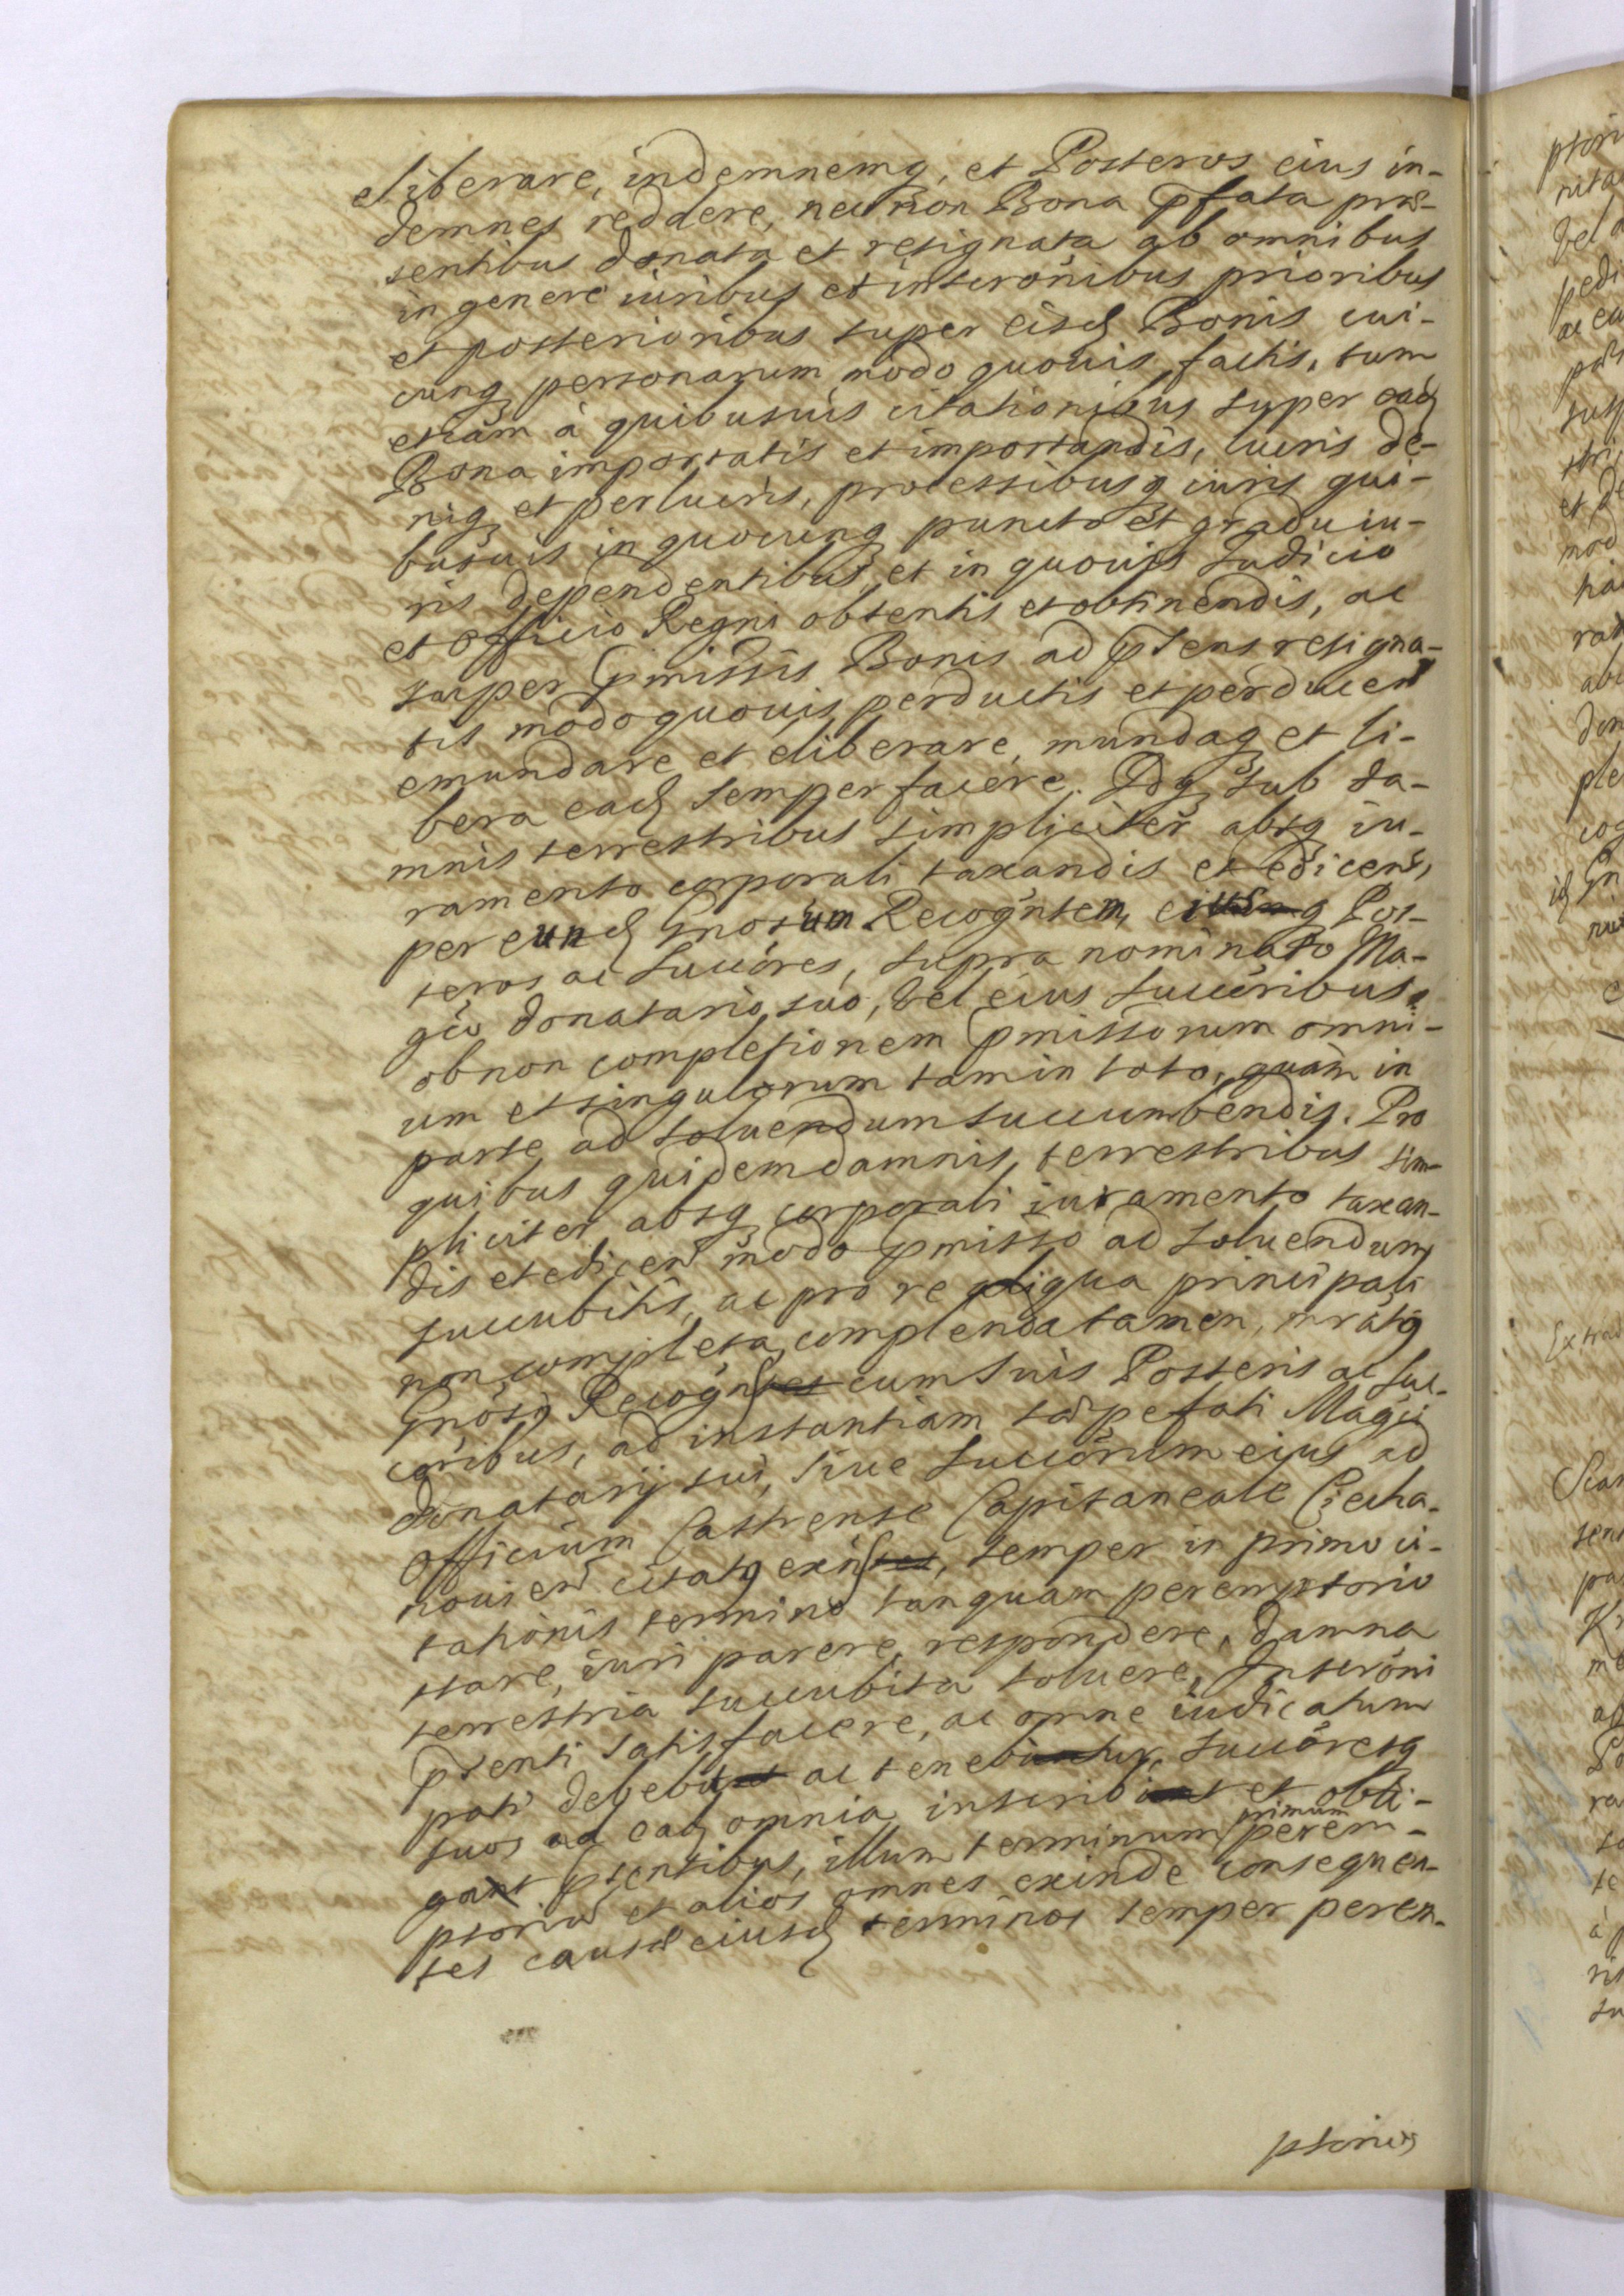 eliberare, indemnemq, et Posteros eius in-
demnes reddere, nec non Bona pfata præ-
sentibus donata et resignata ab omnibus
in genere iuribus et inscrōnibus prioribus
et posterioribus super eisd Bonis cui-
cunq personarum modo quovis factis, tum
etiam à quibusuis citationibus super ead
Bona importatis et importandis, lucris de-
niq et perlucris, processibusq iuris qui-
busuis in quocunq puncto et gradu iu-
ris dependentibus, et in quouis Iudicio
et officio Regni obtentis et obtinendis, ac
super pmissis Bonis ad pñs resigna-
tis modo quouis perductis et perducen
emundare et eliberare, mundaq et li-
bera ead semper facere. Idq sub da-
mnis terrestribus simpliciter absq iu-
ramento corporali taxandis et edicen,
per eund Gnosum Recogntem, eiusq Pos-
teros ac Succōres, supra nominato Ma-
gco donatario suo, vel eius Succōribus,
ob non completionem pmissorum omni-
um et singulorum tam in toto, quàm in
parte ad soluendum succumbendis. Pro
quibus quidem damnis terrestribus sim-
pliciter absq corporali iuramento taxan-
dis et edicen modo pmisso ad soluendum
succubitis, ac pro re aliqua principali
non completa, complenda tamen,
Gnosq Recogns cum suis Posteris ac Suc-
cōribus, ad instantiam sæpefati Magci
donatarij sui, siue Succōrum eius ad
officium Castrense Capitaneale Ciecha-
novien citatq exns, semper in primo ci-
tationis termino tanquam peremptorio
stare, iuri parere, respondere, damna
terrestria succubita soluere, Inscrōni
pñti satisfacere, ac omne iudicatum
pati debebit ac tenebitur, Succōresq
suos ad ead omnia inscribit et obli-
gat pñtibus, illum terminum primum perem-
ptoriu et alios omnes exinde consequen-
tes causæ eiusd terminos semper perem-
ptorios